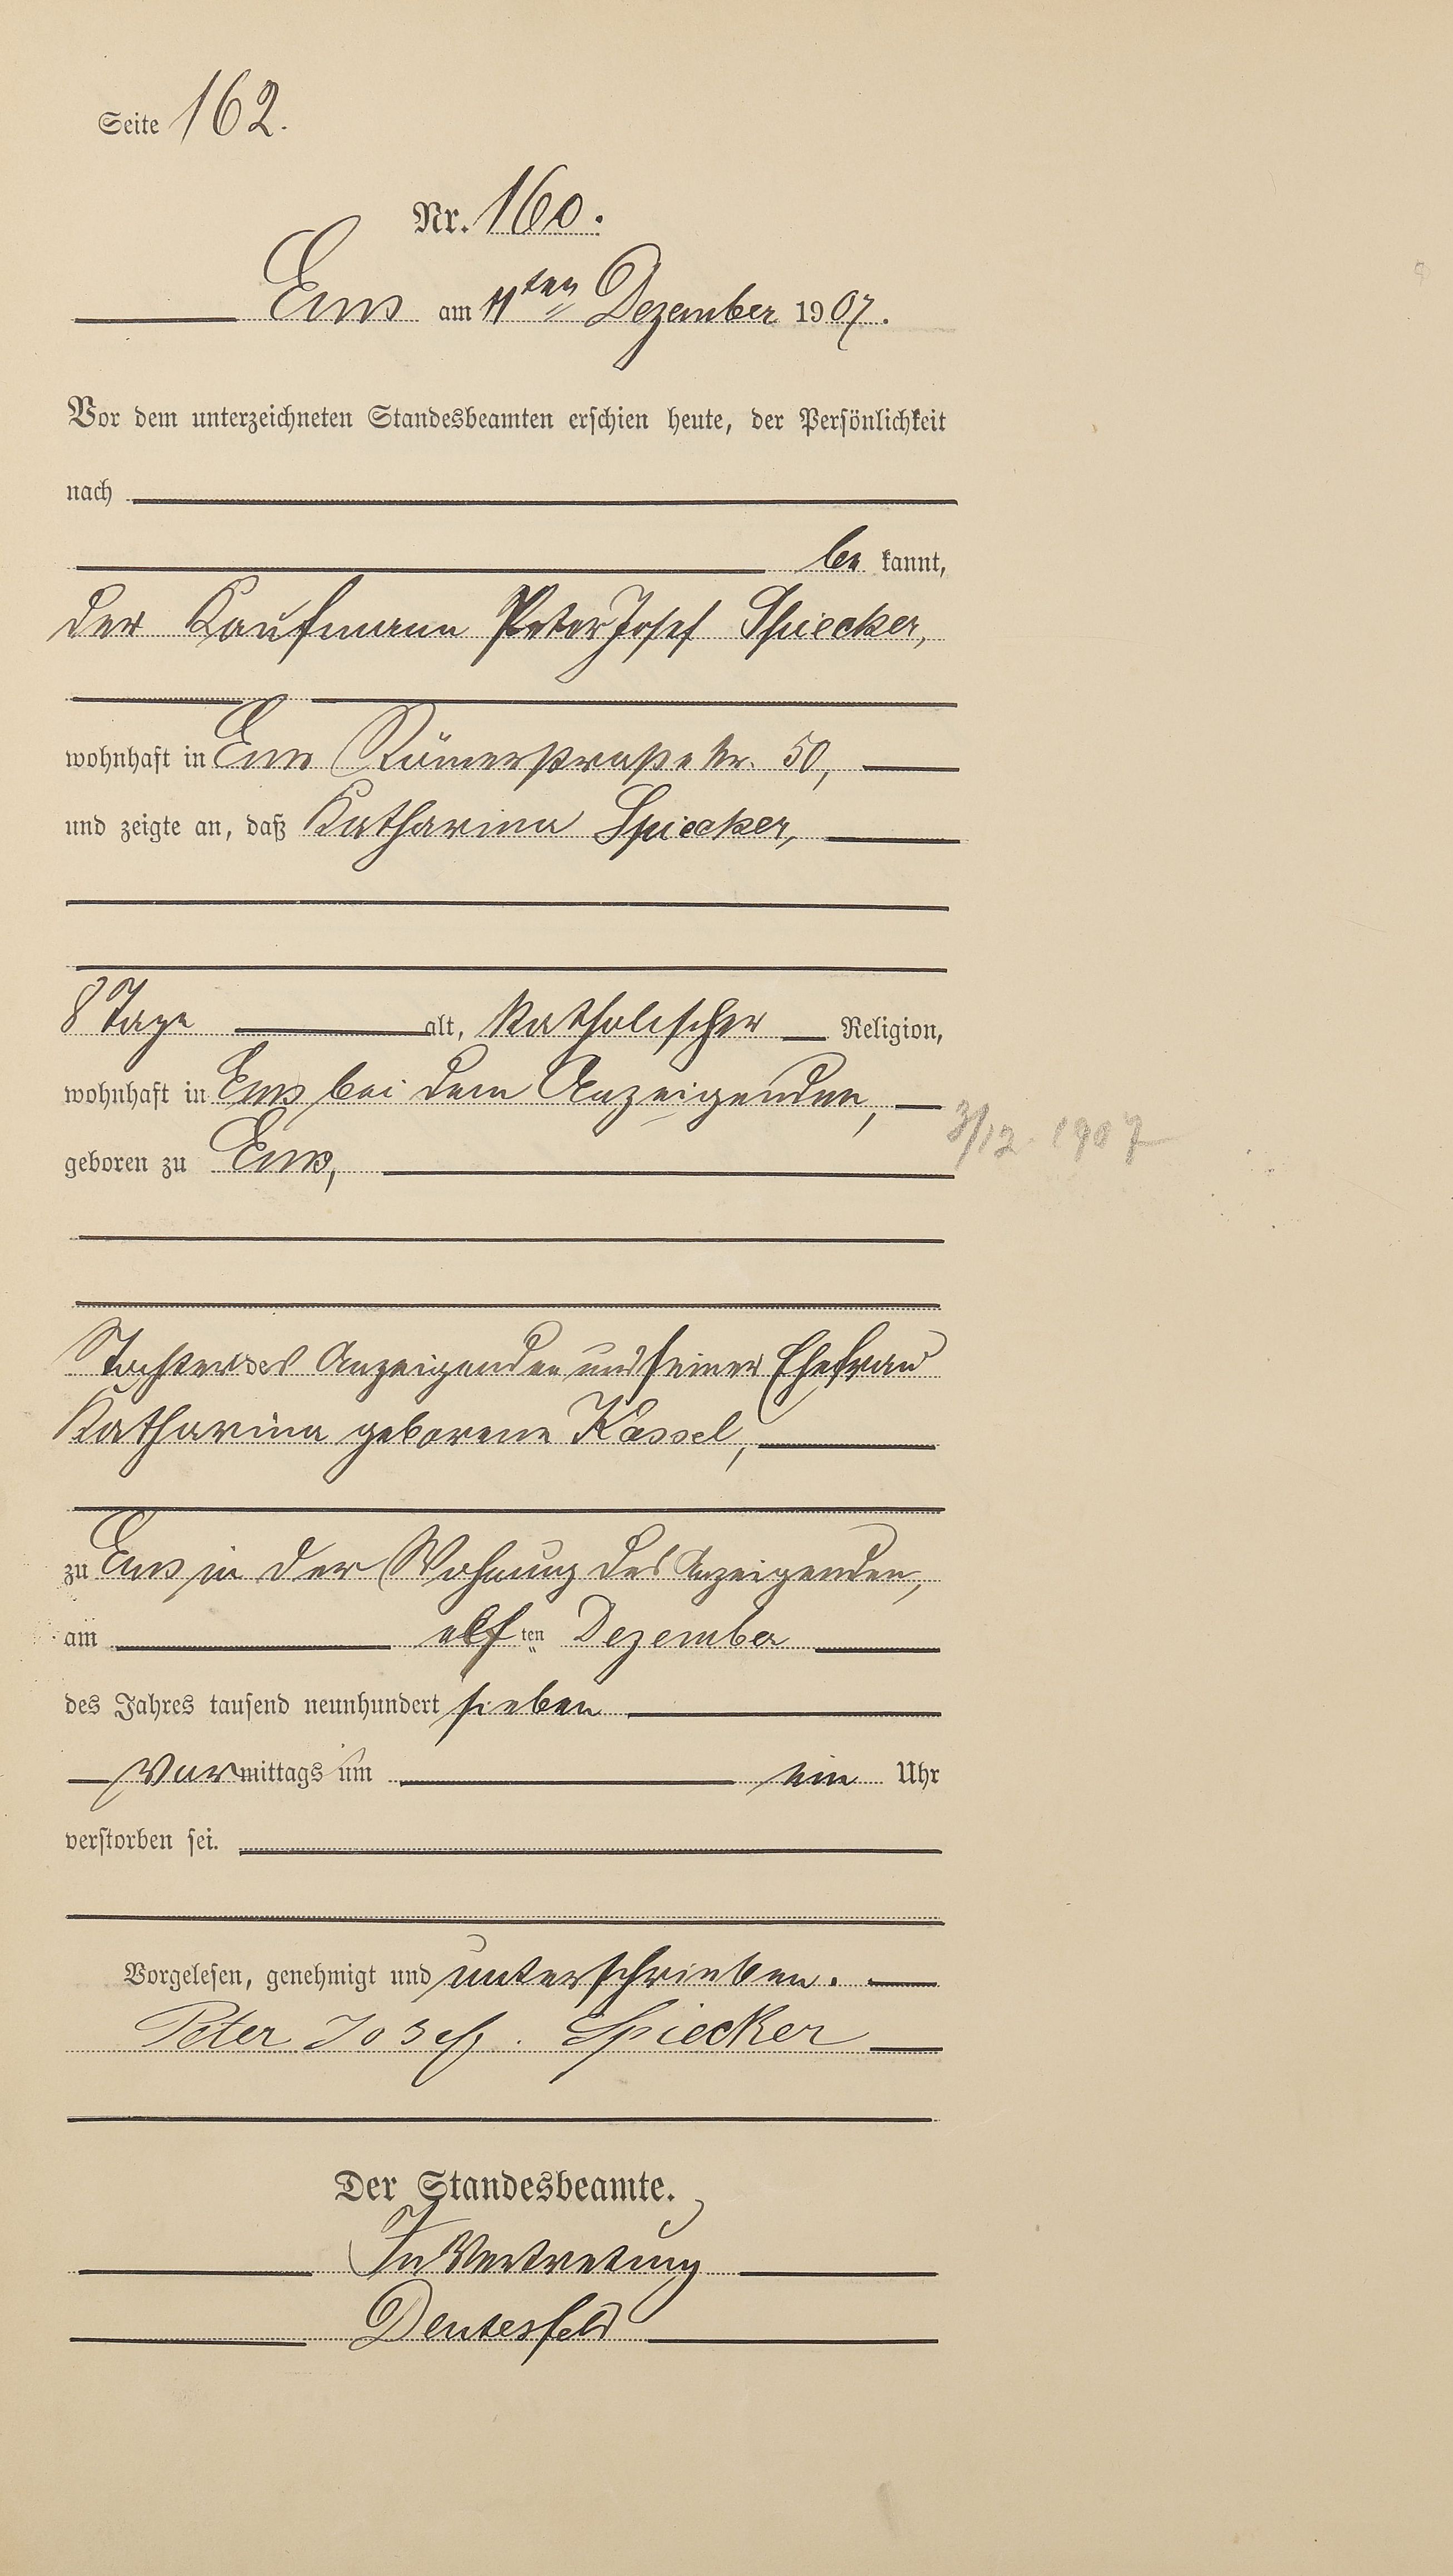 Seite 162.
Nr. 160.
Ems am 11ten Dezember 1907.
Vor dem unterzeichneten Standesbeamten erschien heute, der Persönlichkeit
nach
be kannt,
der Kaufmann Peter Josef Spiecker,
wohnhaft in Ems Römerstraße Nr. 50,
und zeigte an, daß Katharina Spiecker,
8 Tage alt, katholischer Religion,
wohnhaft in Ems bei dem Anzeigenden,
3/12. 1907
geboren zu Ems,
Tochter des Anzeigenden und seiner Ehefrau
Katharina geborene Kassel,
zu Ems in der Wohnung des Anzeigenden,
am elf ten Dezember
des Jahres tausend neunhundert sieben
Vormittags um ein Uhr
verstorben sei.
Vorgelesen, genehmigt und unterschrieben.
Peter Josef. Spiecker
Der Standesbeamte.
In Vertretung
Deutesfeld